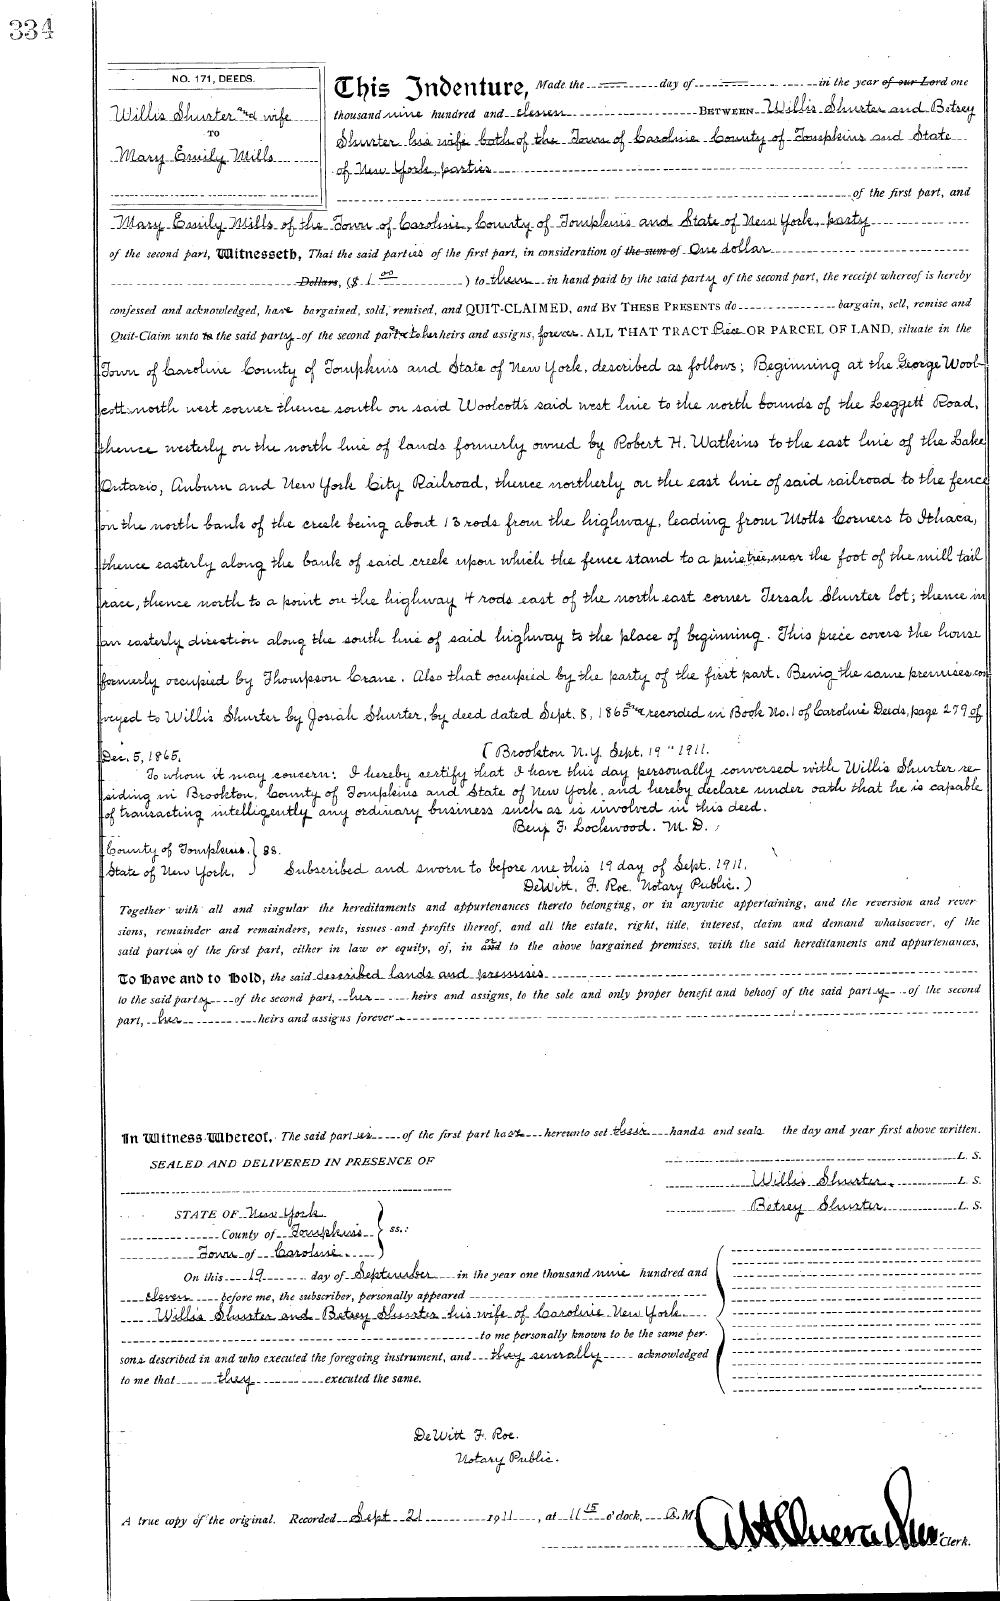 334
NO. 171, DEEDS.
Willis Shurter and wife
TO
Mary Emily Mills
This Indenture, Made the day of in the year of our Lord one
thousand nine hundred and eleven BETWEEN Willis Shurter and Betsey
Shurter his wife both of the Town of Caroline County of Tompkins and State
of New York, parties
of the first part, and
Mary Emily Mills of the Town of Caroline, County of Tompkins and State of New York, party
of the second part, Witnesseth, That the said parties of the first part, in consideration of the sum of One dollar
Dollars, ($ 1 00 ) to them in hand paid by the said party of the second part, the receipt whereof is hereby
confessed and acknowledged, have bargained, sold, remised, and QUIT-CLAIMED, and BY THESE PRESENTS do bargain, sell, remise and
Quit-Claim unto to the said party of the second part, & to her heirs and assigns, forever. ALL THAT TRACT Piece OR PARCEL OF LAND, situate in the
Town of Caroline County of Tompkins and State of New York, described as follows; Beginning at the George Wool-
cott north west corner thence south on said Woolcotts said west line to the north bounds of the Leggett Road,
thence westerly on the north line of lands formerly owned by Robert H. Watkins to the east line of the Lake
Ontario, Auburn and New York City Railroad, thence northerly on the east line of said railroad to the fence
on the north bank of the creek being about 13 rods from the highway, leading from Motts Corners to Ithaca,
thence easterly along the bank of said creek upon which the fence stand to a pine tree, near the foot of the mill tail
race, thence north to a point on the highway 4 rods east of the north east corner Tersah Shurter lot; thence in
an easterly direction along the south line of said highway to the place of beginning. This piece covers the house
formerly occupied by Thompson Crane. Also that occupied by the party of the first part. Being the same premises con
veyed to Willis Shurter by Josiah Shurter, by deed dated Sept. 8, 1865 and recorded in Book No. 1 of Caroline Deeds, page 279 of
Dec. 5, 1865.
( Brookton N.Y. Sept. 19" 1911.
To whom it may concern: I hereby certify that I have this day personally conversed with Willis Shurter re-
siding in Brookton, County of Tompkins and State of New York, and hereby declare under oath that he is capable
of transacting intelligently any ordinary business such as is involved in this deed.
Benj F. Lockwood. M.D.
County of Tompkins. } ss.
State of New York. } Subscribed and sworn to before me this 19 day of Sept. 1911.
DeWitt. F. Roe. Notary Public. )
Together with all and singular the hereditaments and appurtenances thereto belonging, or in anywise appertaining, and the reversion and rever
sions, remainder and remainders, rents, issues and profits thereof, and all the estate, right, title, interest, claim and demand whatsoever, of the
said parties of the first part, either in law or equity, of, in and to the above bargained premises, with the said hereditaments and appurtenances,
To Have and to Hold, the said described lands and premises
to the said party of the second part, her heirs and assigns, to the sole and only proper benefit and behoof of the said party of the second
part, her heirs and assigns forever
In Witness Whereof, The said parties of the first part have hereunto set their hands and seals the day and year first above written.
SEALED AND DELIVERED IN PRESENCE OF
L. S.
Willis Shurter. L. S.
Betsey Shurter. L. S.
STATE OF New York
County of Tompkins } ss.:
Town of Caroline.
On this 19 day of September in the year one thousand nine hundred and
eleven before me, the subscriber, personally appeared
Willis Shurter and Betsey Shurter his wife of Caroline New York
to me personally known to be the same per-
sons described in and who executed the foregoing instrument, and they severally acknowledged
to me that they executed the same.
DeWitt F. Roe.
Notary Public.
A true copy of the original. Recorded Sept 21 1911, at 11 15 o'clock, A.M.
Clerk.